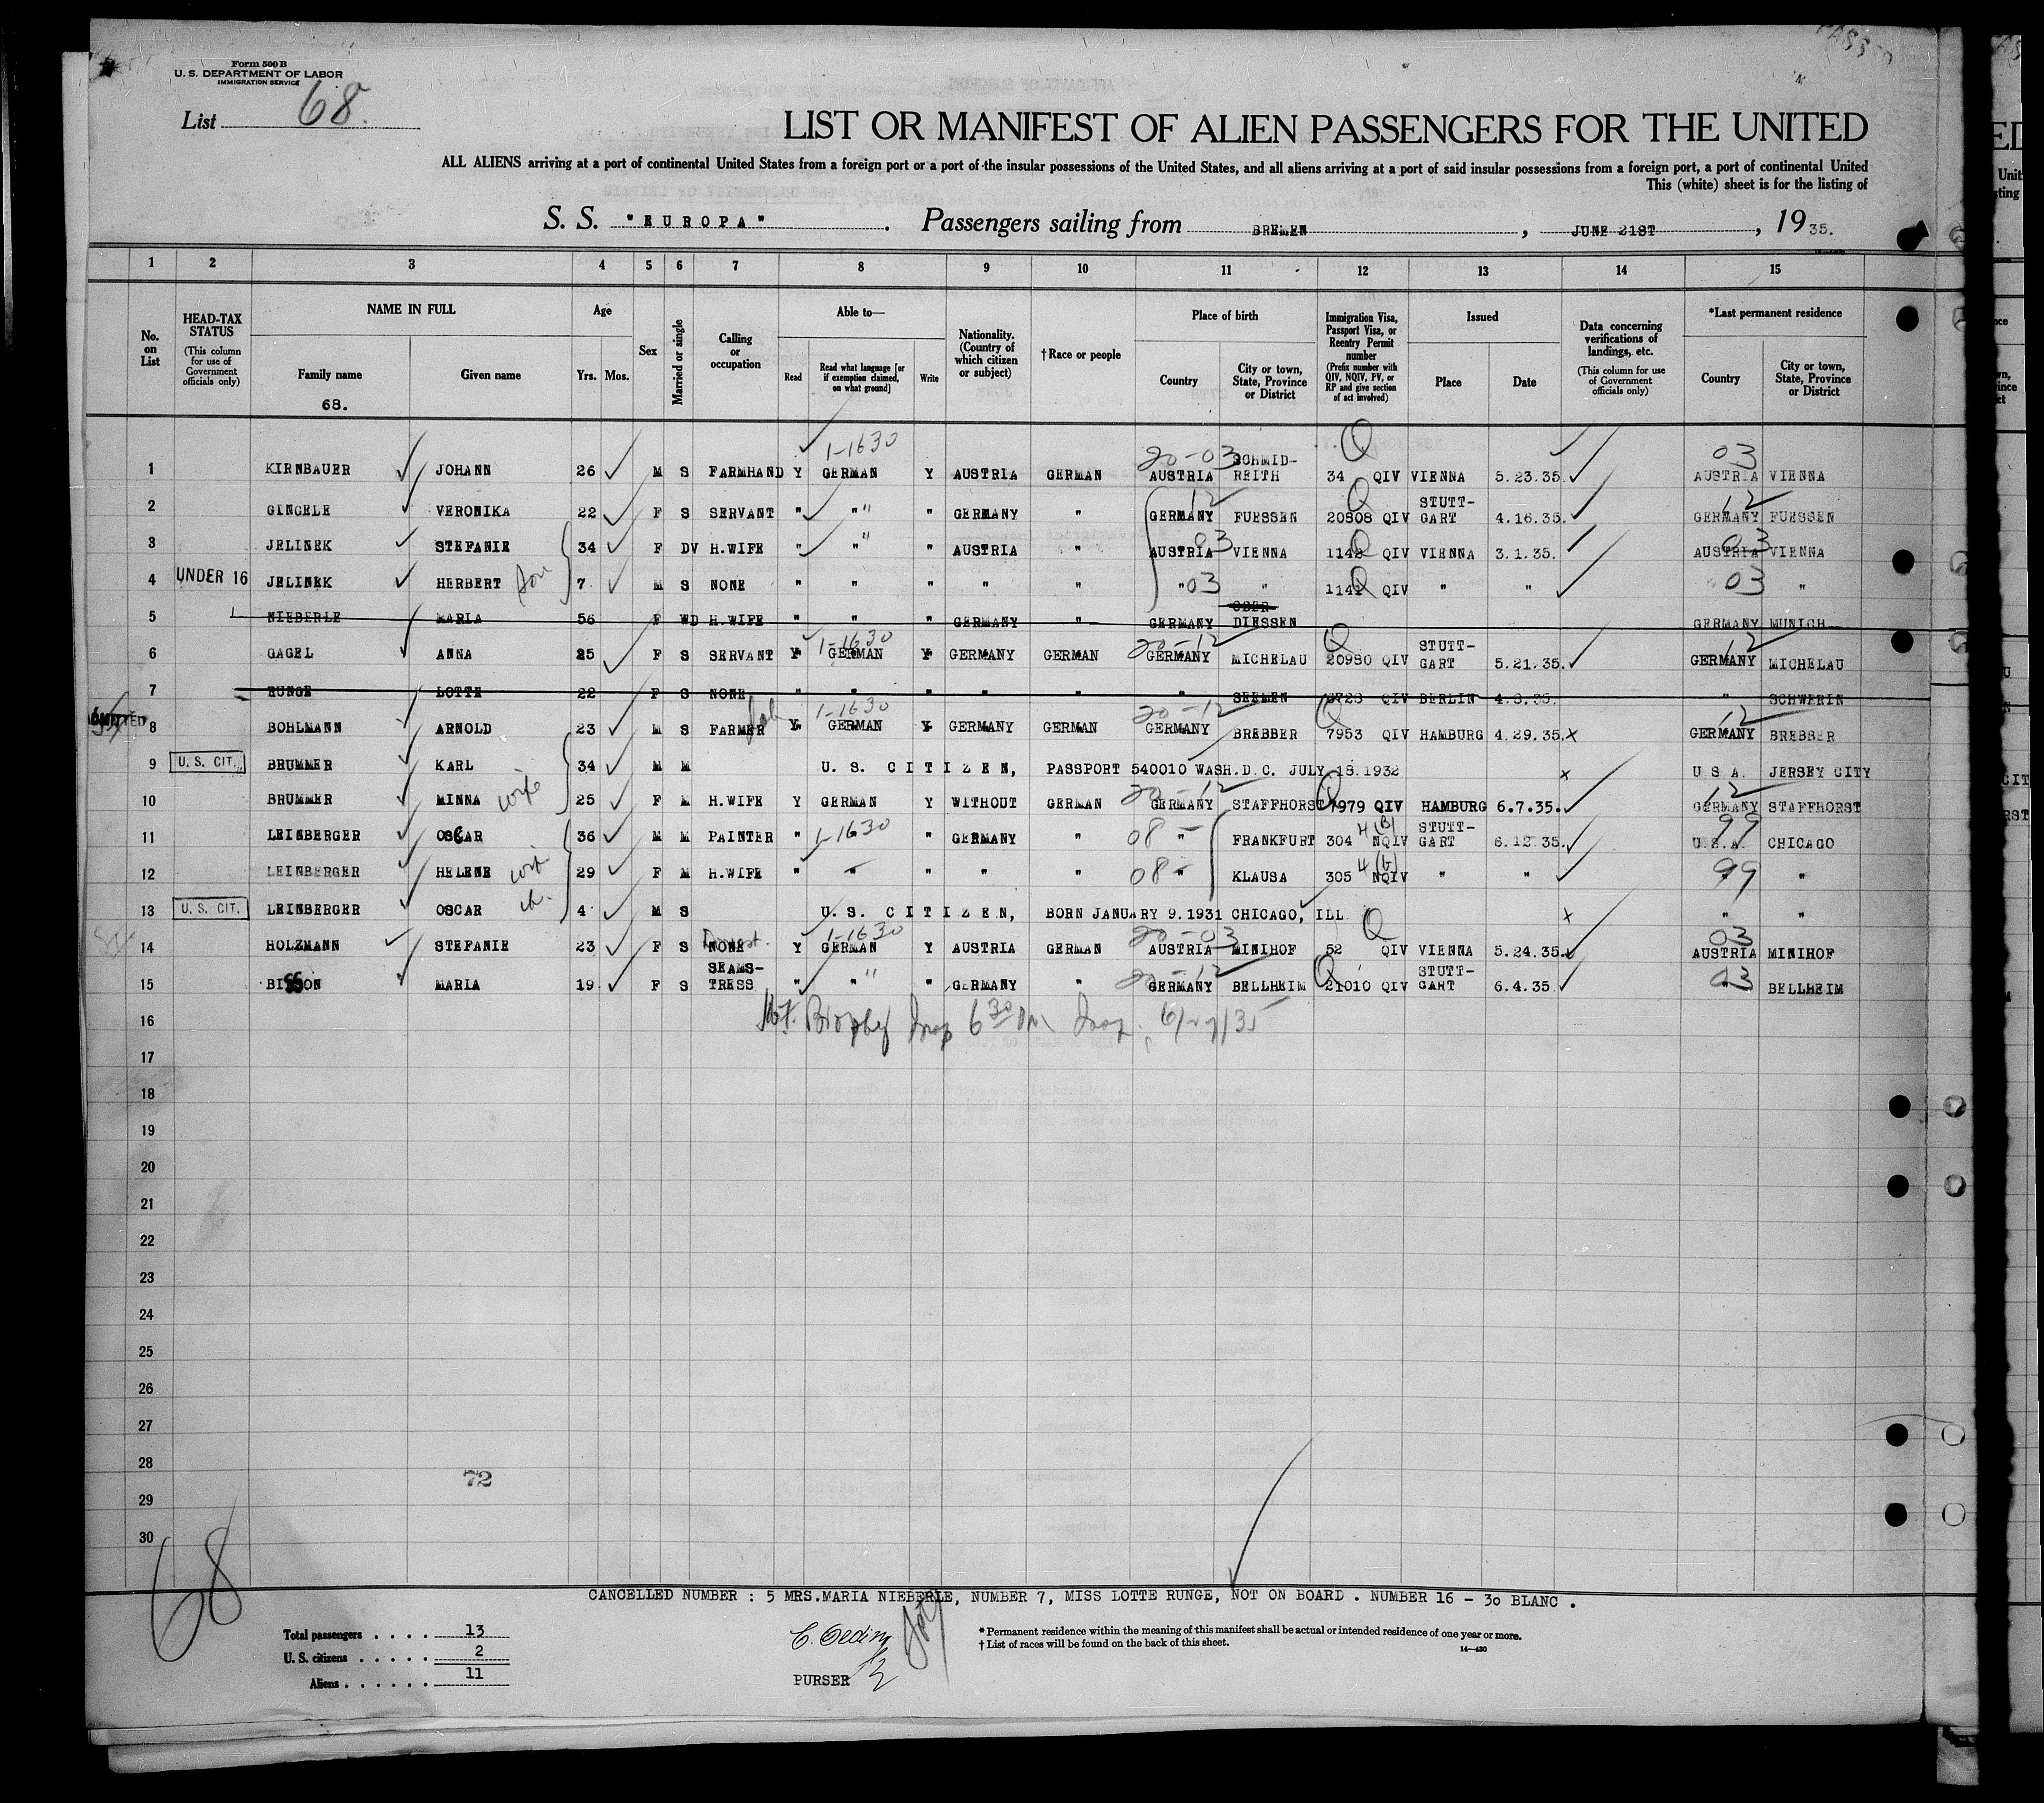 Form 500 B
U. S. DEPARTMENT OF LABOR
IMMIGRATION SERVICE
List 68.
LIST OR MANIFEST OF ALIEN PASSENGERS FOR THE UNITED
ALL ALIENS arriving at a port of continental United States from a foreign port or a port of the insular possessions of the United States, and all aliens arriving at a port of said insular possessions from a foreign port, a port of continental United
This (white) sheet is for the listing of
S. S. "EUROPA". Passengers sailing from BREMEN, JUNE 21ST, 1935.
1 2 3 4 5 6 7 8 9 10 11 12 13 14 15
No. on List
HEAD-TAX STATUS
(This column for use of Government officials only)
NAME IN FULL
Family name
Given name
68.
Age
Yrs. Mos.
Sex
Married or single
Calling or occupation
Able to—
Read
Read what language [or if exemption claimed, on what ground]
Write
Nationality. (Country of which citizen or subject)
†Race or people
Place of birth
Country
City or town, State, Province or District
Immigration Visa, Passport Visa, or Reentry Permit number
(Prefix number with QIV, NQIV, PV, or RP and give section of act involved)
Issued
Place
Date
Data concerning verifications of landings, etc.
(This column for use of Government officials only)
*Last permanent residence
Country
City or town, State, Province or District
1-1630 20-03 Q 03
1 KIRNBAUER JOHANN 26 M S FARMHAND Y GERMAN Y AUSTRIA GERMAN AUSTRIA SCHMID-REITH 34 QIV VIENNA 5.23.35. AUSTRIA VIENNA
12 Q 12
2 GINGELE VERONIKA 22 F S SERVANT " " " GERMANY " GERMANY FUESSEN 20808 QIV STUTT-GART 4.16.35. GERMANY FUESSEN
3 JELINEK STEFANIE 34 F DV H.WIFE " " " AUSTRIA " AUSTRIA 03 VIENNA Q QIV VIENNA 3.1.35. AUSTRIA 03 VIENNA
4 UNDER 16 JELINEK HERBERT son 7 M S NONE " " " " " " 03 " Q QIV " " 03 "
5 NIEBERLE MARIA 56 F WD H.WIFE " " " GERMANY " GERMANY OBER-DIESSEN GERMANY MUNICH
1-1630 20-12 Q 12
6 GAGEL ANNA 25 F S SERVANT Y GERMAN Y GERMANY GERMAN GERMANY MICHELAU 20980 QIV STUTT-GART 5.21.35. GERMANY MICHELAU
7 RUNGE LOTTE 22 F S NONE " " " " " " QIV BERLIN 4.8.35. " SCHWERIN
ADMITTED 1-1630 20-12 Q 12
8 BOHLMANN ARNOLD 23 M S FARMER Y GERMAN Y GERMANY GERMAN GERMANY BREBBER 7953 QIV HAMBURG 4.29.35. X GERMANY BREBBER
9 U. S. CIT. BRUMMER KARL 34 M M U. S. CITIZEN, PASSPORT 540010 WASH.D.C. JULY 18.1932 X U S A. JERSEY CITY
20-12 Q 12
10 BRUMMER MINNA wife 25 F M H.WIFE Y GERMAN Y WITHOUT GERMAN GERMANY STAFFHORST 7979 QIV HAMBURG 6.7.35. GERMANY STAFFHORST
11 LEINBERGER OSCAR 36 M M PAINTER " 1-1630 " GERMANY " 08 - " FRANKFURT 304 4(B) NQIV STUTT-GART 6.12.35. 99 U.S.A. CHICAGO
12 LEINBERGER HELENE wife 29 F M H.WIFE " " " " " 08 - " KLAUSA 305 4(b) NQIV " " 99 "
13 U. S. CIT. LEINBERGER OSCAR ch. 4 M S U. S. CITIZEN, BORN JANUARY 9.1931 CHICAGO, ILL X " "
Domest. 1-1630 20-03 Q 03
14 HOLZMANN STEFANIE 23 F S NONE Y GERMAN Y AUSTRIA GERMAN AUSTRIA MINIHOF 52 QIV VIENNA 5.24.35. AUSTRIA MINIHOF
20-12 Q 03
15 BISSON MARIA 19 F S SEAMS-TRESS " " " GERMANY " GERMANY BELLHEIM 21010 QIV STUTT-GART 6.4.35. " BELLHEIM
16 Insp 6 30 PM 6/27/35
17
18
19
20
21
22
23
24
25
26
27
28
72
29
30
68
CANCELLED NUMBER : 5 MRS.MARIA NIEBERLE, NUMBER 7, MISS LOTTE RUNGE, NOT ON BOARD . NUMBER 16 - 30 BLANC .
Total passengers . . . . 13
U. S. citizens . . . . . 2
Aliens . . . . . . 11
PURSER
* Permanent residence within the meaning of this manifest shall be actual or intended residence of one year or more.
† List of races will be found on the back of this sheet.
14—430